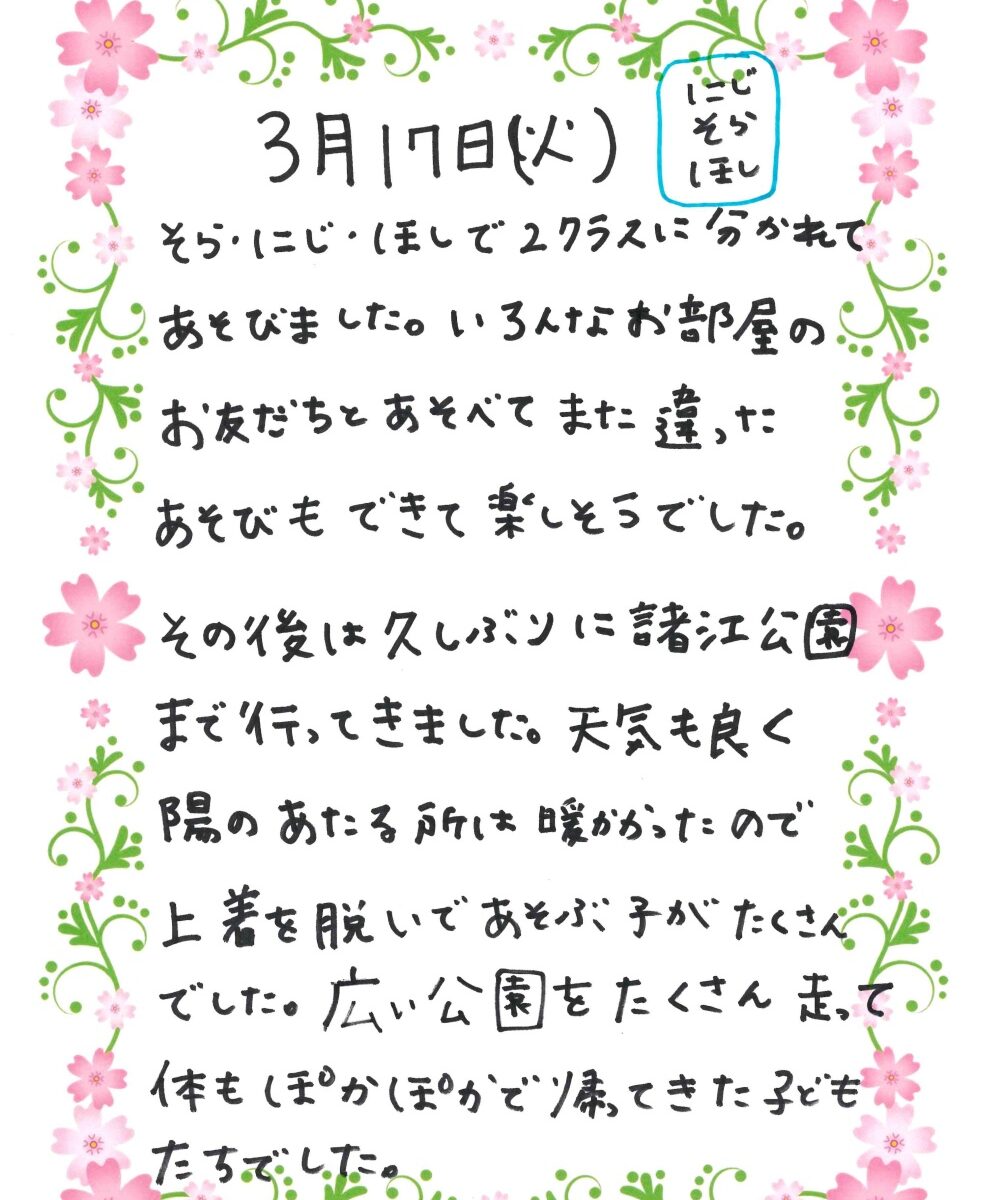 3月17日(火)
にじ
そら
ほし
そら・にじ・ほしで2クラスに分かれて
あそびました。いろんなお部屋の
お友だちとあそべてまた違った
あそびもできて楽しそうでした。
その後は久しぶりに諸江公園
まで行ってきました。天気も良く
陽のあたる所は暖かかったので
上着を脱いであそぶ子がたくさん
でした。広い公園をたくさん走って
体もぽかぽかで帰ってきた子ども
たちでした。